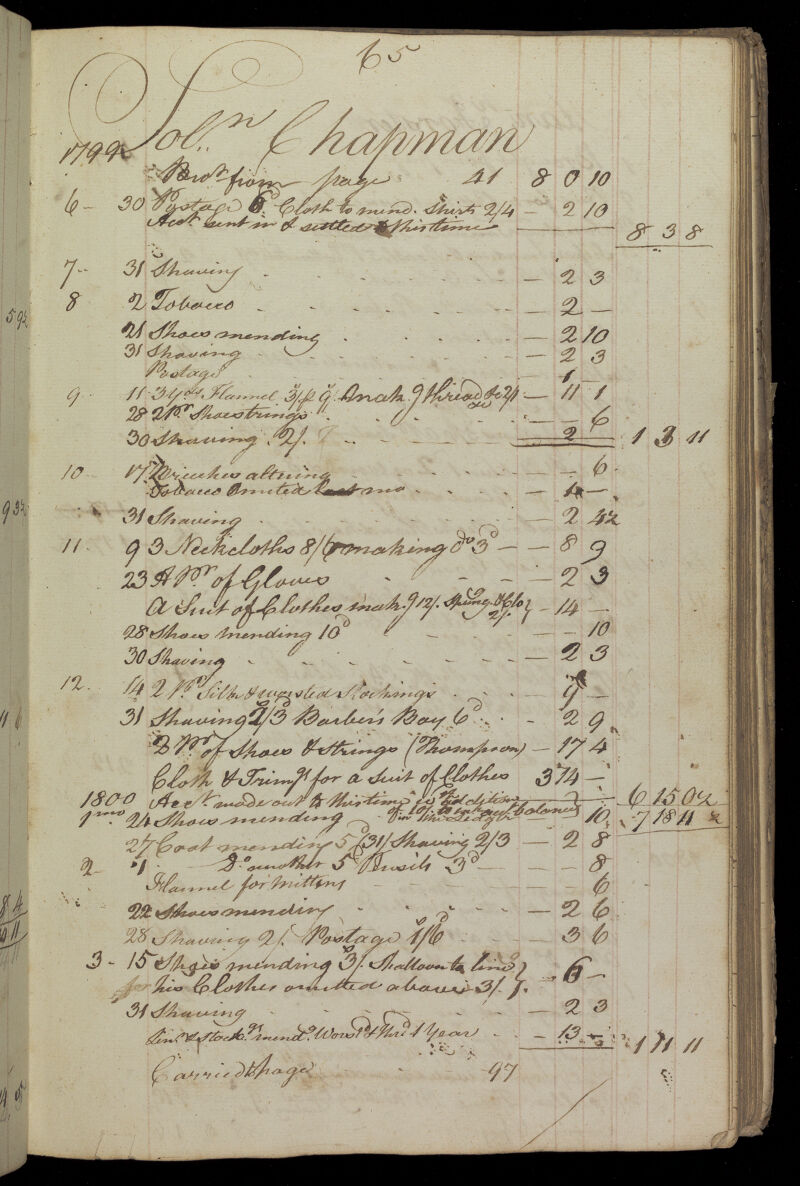 65
Sol.n Chapman
1799
Bro.t from page 41 8 0 10
6 - 30 Postage 6d Cloth to mend. Shirts 2/4 - 2 10
Acct. sent in & settled to this time 8 3 8
7 - 31 Shaving - 2 3
8 2 Tobacco - 2 -
21 Shoes mending - 2 10
31 Shaving - 2 3
Postage 1 -
9 11 3 yds Flannel mak.g thread &c 2/1 - 11 1
28 2 Pr Shoestrings - 6
30 Shaving 2/. 2 1 3 11
10 17 Breeches altering - 6
Tobacco omited last mo - 1 -
31 Shaving - 2 4½
11 9 3 Neckcloths 8/6 making do 3d - - 8 9
23 A Pr of Gloves - 2 3
A Suit of Clothes mak.g 12/. 2/. - 14 -
28 Shoes mending 10d - - 10
30 Shaving - 2 3
12 14 2 Pr Silk & worsted Stockings 9 -
31 Shaving 2/3 Barber's Boy 6d - 2 9
2 Pr of Shoes & Strings (Thompson) - 17 4
Cloth & Trim.gs for a Suit of Clothes 3 14 -
1800 Acct. made out to this time 6 15 0½
1 mo 24 Shoes mending balance 10 7 18 11½
27 Coat mending 5d (31) Shaving 2/3 - 2 8
2 - 1 Do another 5d Pensils 3d - - 8
Flannel for mittens - 6
22 Shoes mending - 2 6
28 Shaving 2/. Postage 1/6 - 3 6
3 - 15 Shoes mending 3/. Shalloon to line
his Clothes omitted above 3/. - 6 -
31 Shaving - 2 3
Lin.n & Stock.gs mend.g Worst.d & Thrd 1 Year - 13 - 1 11 11
Carried to page 97